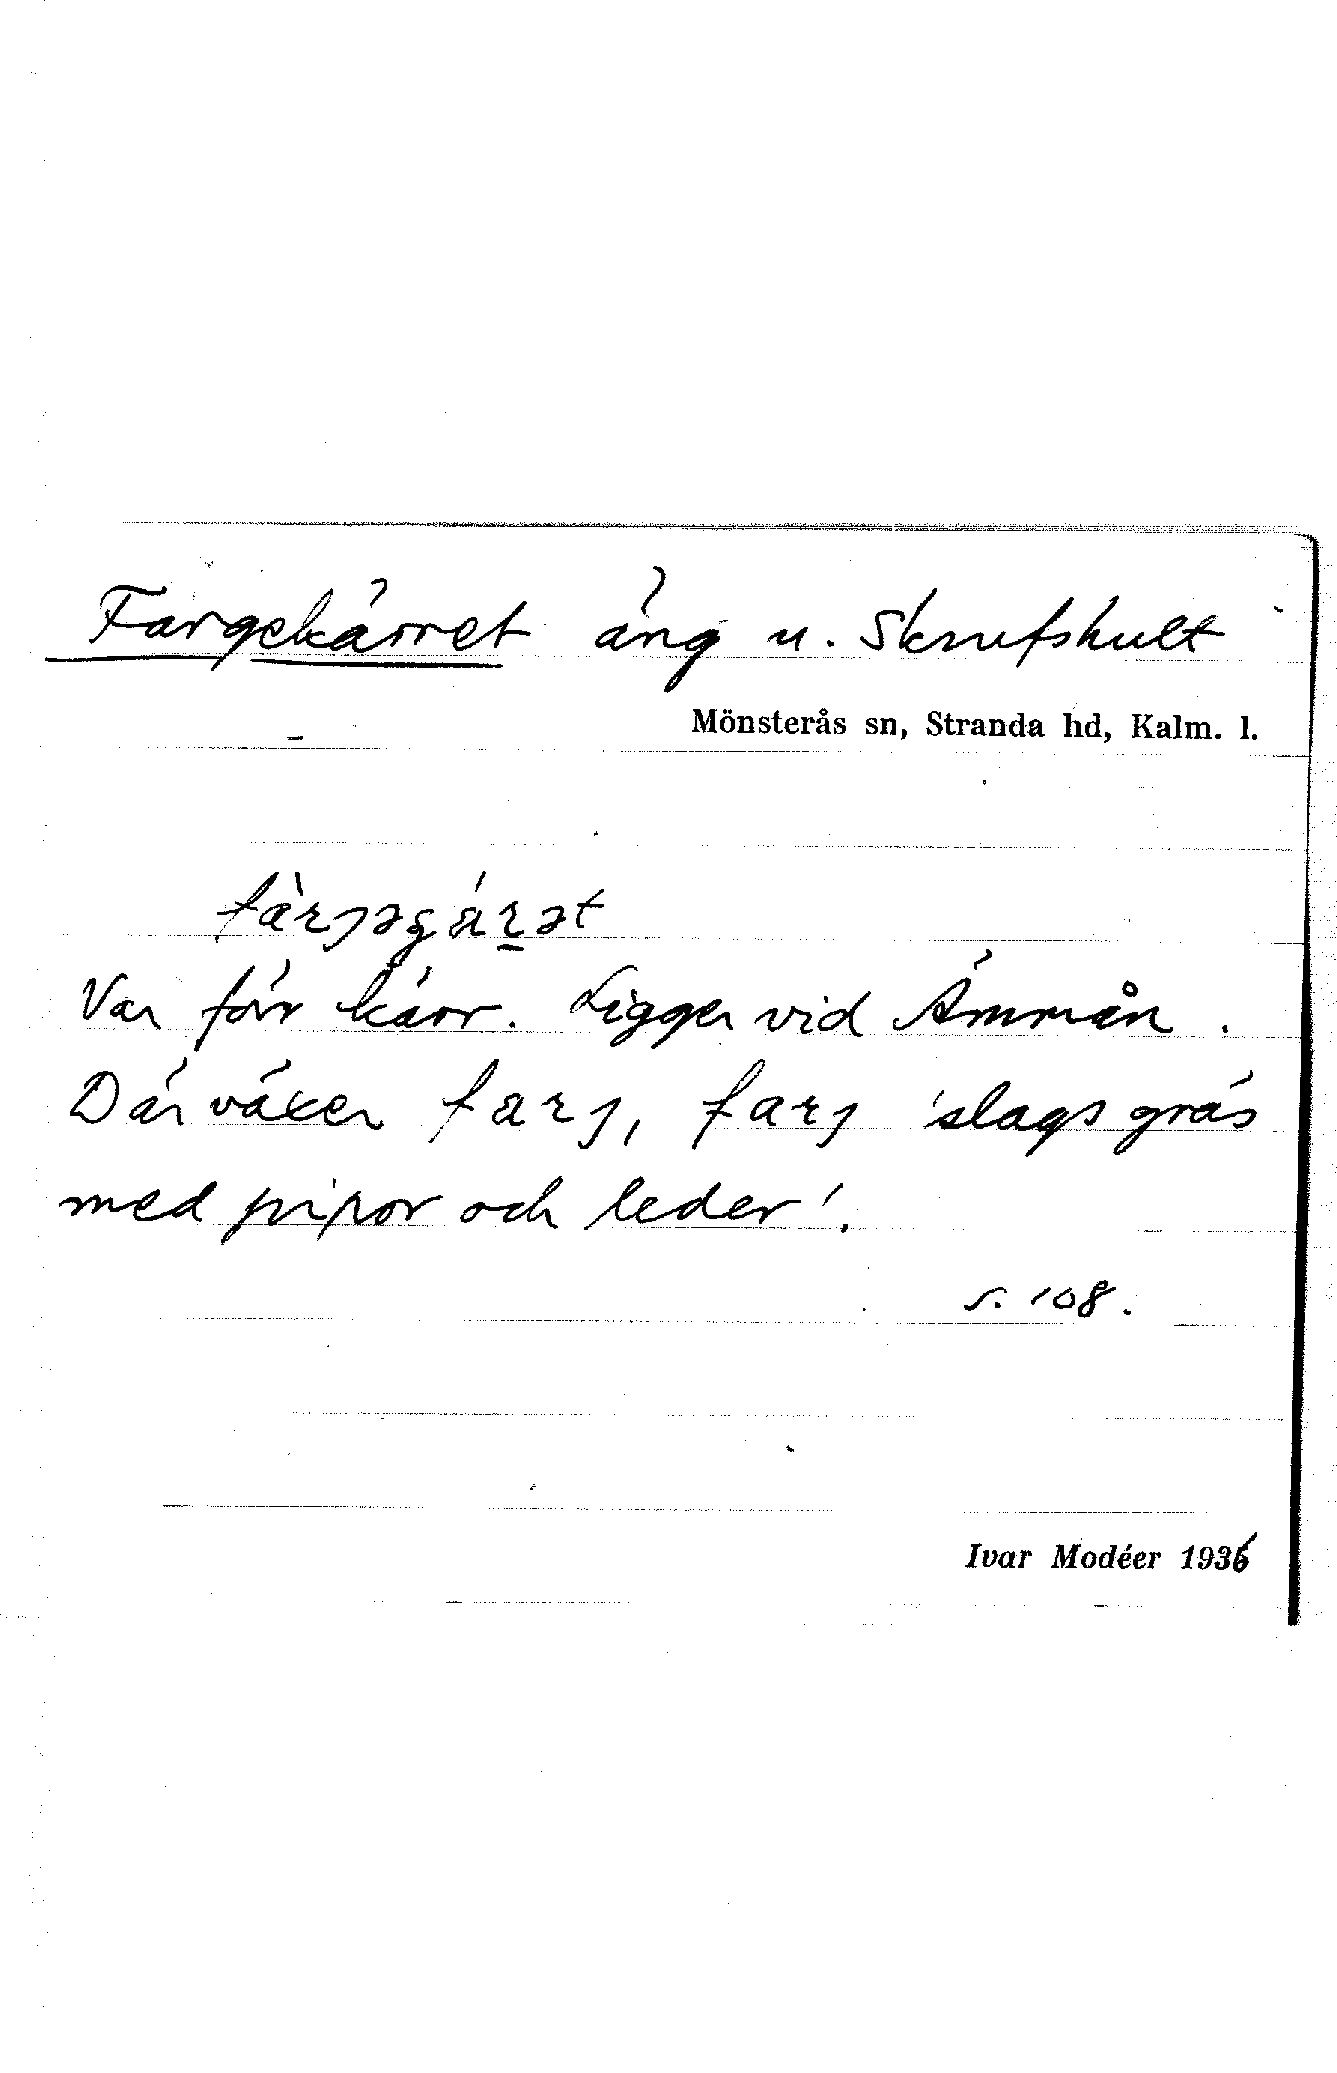 Fargekärret äng u. Skrufshult
Mönsterås sn, Stranda hd, Kalm. l.
fàrjəgárət
Var förr kärr. Ligger vid Ämmån.
Där växer farj, farj 'slags gräs
med pipor och leder'.
s. 108.
Ivar Modéer 1936